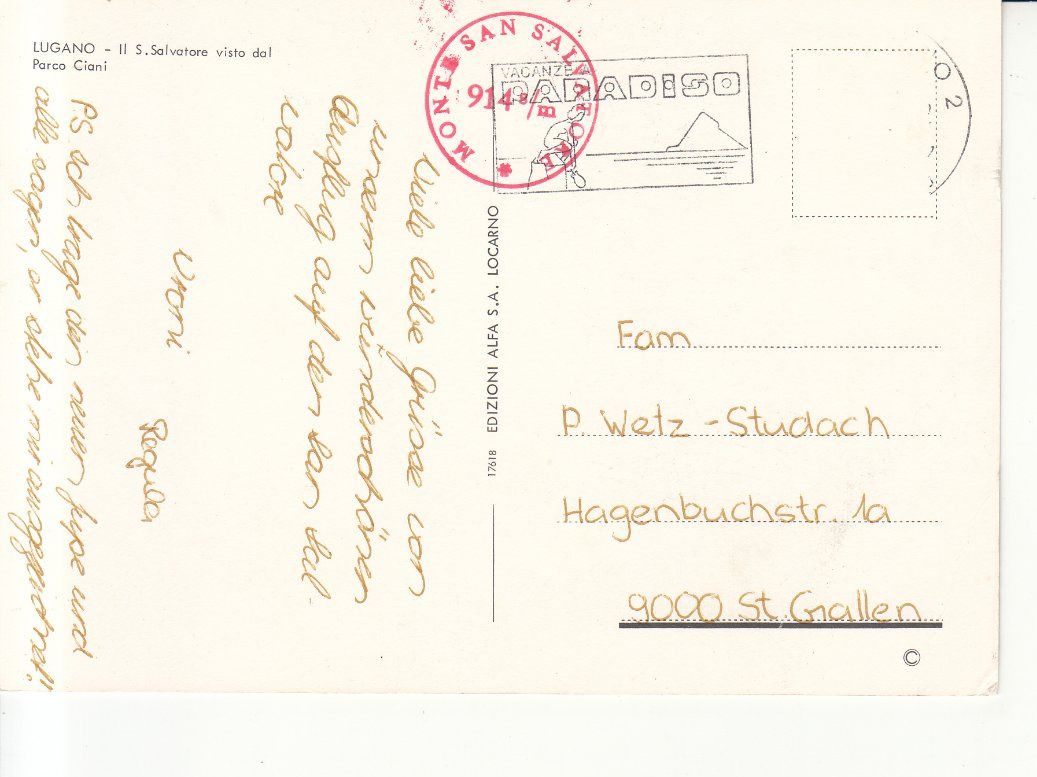 LUGANO - Il S. Salvatore visto dal
Parco Ciani
MONTE SAN SALVATORE
914 s/m
VACANZE A
PARADISO
O 2
Viele liebe Grüsse von
unserm wunderschönen
Ausflug auf den San Sal
vatore
Vroni
Regula
PS. Ich trage den neuen Jupe und
alle sagen, er stehe mir ausgezeichnet!
17618 EDIZIONI ALFA S.A. LOCARNO
Fam
P. Wetz-Studach
Hagenbuchstr. 1a
9000 St. Gallen
©